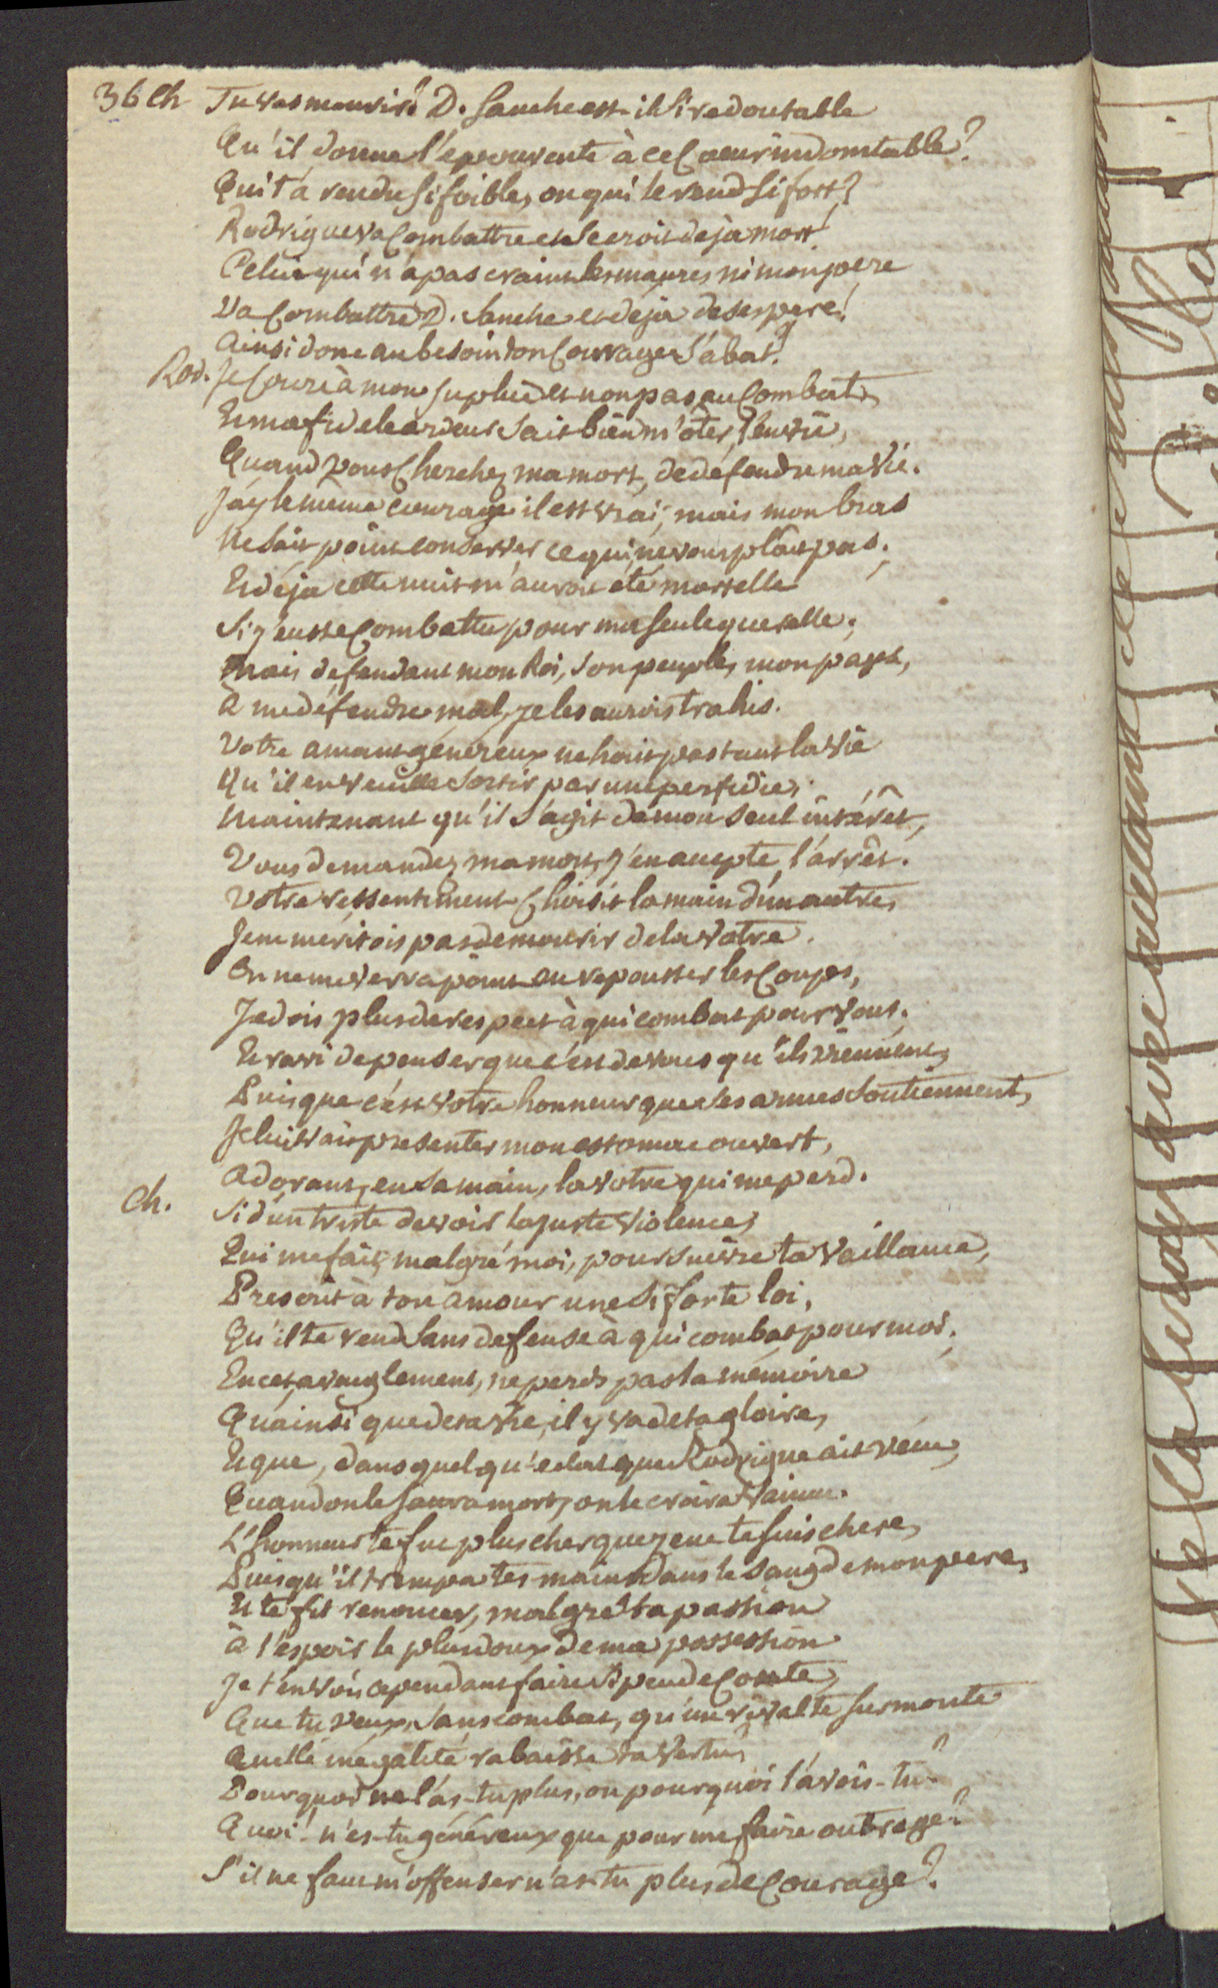 36 Ch Tu vas mourir? D. Sanche est-il si redoutable
Qu'il donne l'épouvente à ce Coeur indomtable?
Qui t'a rendu si foible, ou qui le rend si fort?
Rodrigue va Combattre et se croit déja mort!
Celui qui n'a pas craint les maures ni mon pere
Va Combattre D. Sanche et déja desespere!
Ainsi donc au besoin ton Courage s'abat?
Rod. Je Cours à mon suplice et non pas au Combat,
Et ma fidele ardeur sait bien m'ôter l'envie,
Quand vous Cherchez ma mort, de défendre ma vie.
J'ay le même courage il est vrai, mais mon bras
Ne sait point conserver ce qui ne vous plait pas;
Et déja cette nuit m'auroit été mortelle
Si j'eusse Combattu pour ma seule querelle;
Mais defendant mon Roi, son peuple, mon pays,
à me défendre mal, je les aurois trahis.
Votre amant généreux ne hait pas tant la vie
Qu'il en veuille sortir par une perfidie;
Maintenant qu'il s'agit de mon seul intérêt,
Vous demandez ma mort, j'en accepte l'arrêt.
Votre ressentiment Choisit la main d'un autre,
Je ne méritois pas de mourir de la votre.
On ne me verra point en repousser les Coups,
Je dois plus de respect à qui combat pour vous;
Et ravi de penser que c'est de vous qu'ils viennent,
Puisque c'est votre honneur que ses armes soutiennent,
Je lui vais presenter mon estomac ouvert,
Adorant, en sa main, la votre qui me perd.
Ch. Si d'un triste devoir la juste violence,
Qui me fait, malgré moi, poursuivre ta vaillance,
Prescrit à ton amour une si forte loi,
Qu'il te rend sans defense à qui combat pour moi,
En cet aveuglement, ne perds pas la mémoire
Qu'ainsi que de ta vie, il y va de ta gloire,
Et que, dans quel qu'éclat que Rodrigue ait vécu,
Quand on le saura mort, on le croira Vaincu.
L'honneur te fut plus cher que je ne te suis chere,
Puisqu'il trempa tes mains dans le sang de mon pere,
Et te fit renoncer, malgré ta passion
à l'espoir le plus doux de ma possession
Je t'en vois cependant faire si peu de Conte,
Que tu veux, sans combat, qu'un rival te surmonte
Quelle inégalité rabaisse ta vertu?
Pourquoi ne l'as-tu plus, ou pourquoi l'avois-tu?
Quoi! n'es-tu généreux que pour me faire outrage?
S'il ne faut m'offenser n'as-tu plus de Courage?